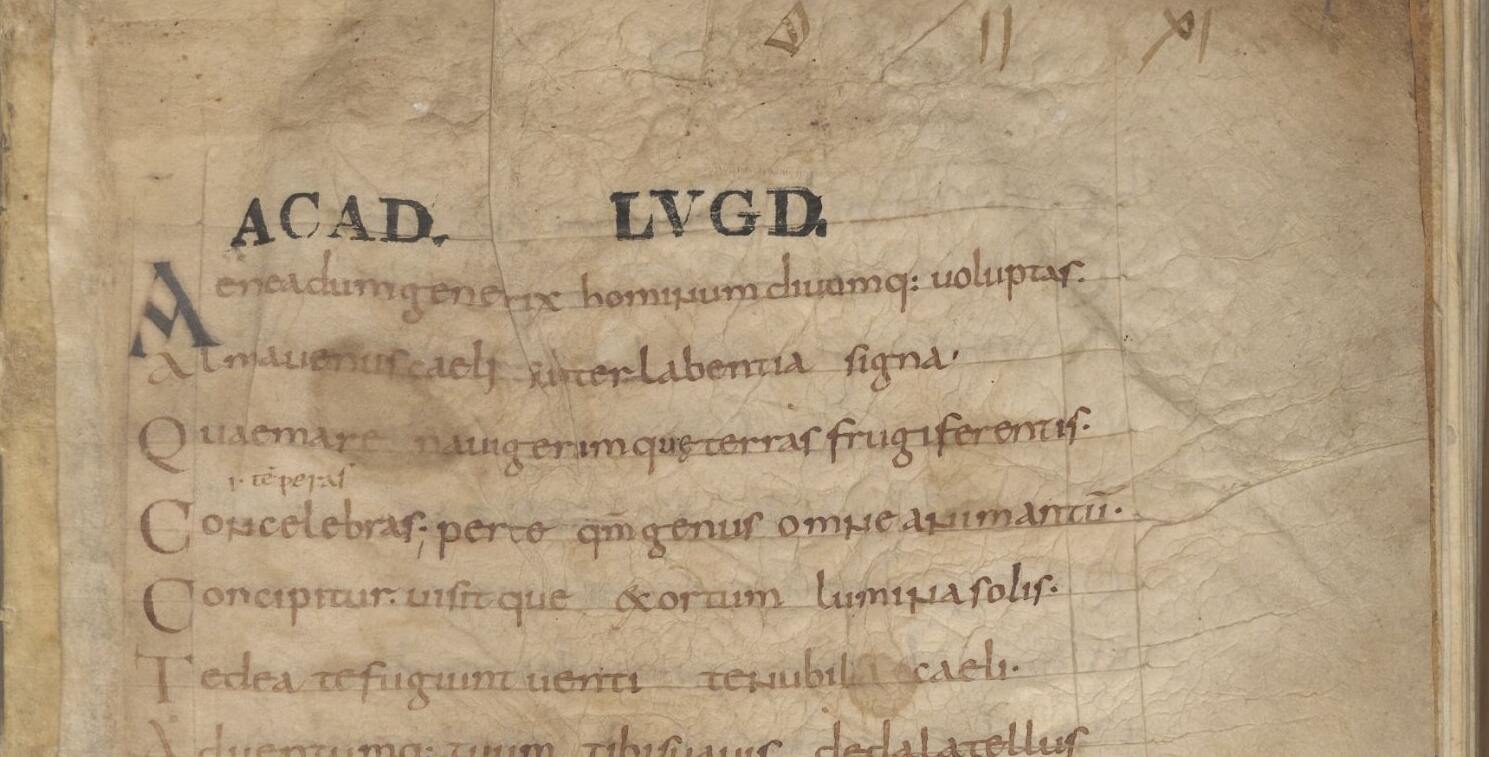 ACAD. LVGD.
Aeneadum genetrix hominum diuomq: uoluptas.
Alma uenus caeli subter labentia signa.
Quae mare nauigerum quę terras frugiferentis.
i. tēperas
Concelebras; per te qm̄ genus omne animantū.
Concipitur. uisit que &ortum lumina solis.
Te dea te fugiunt uenti te nubila caeli.
Aduentumq: tuum tibi suauis dedala tellus